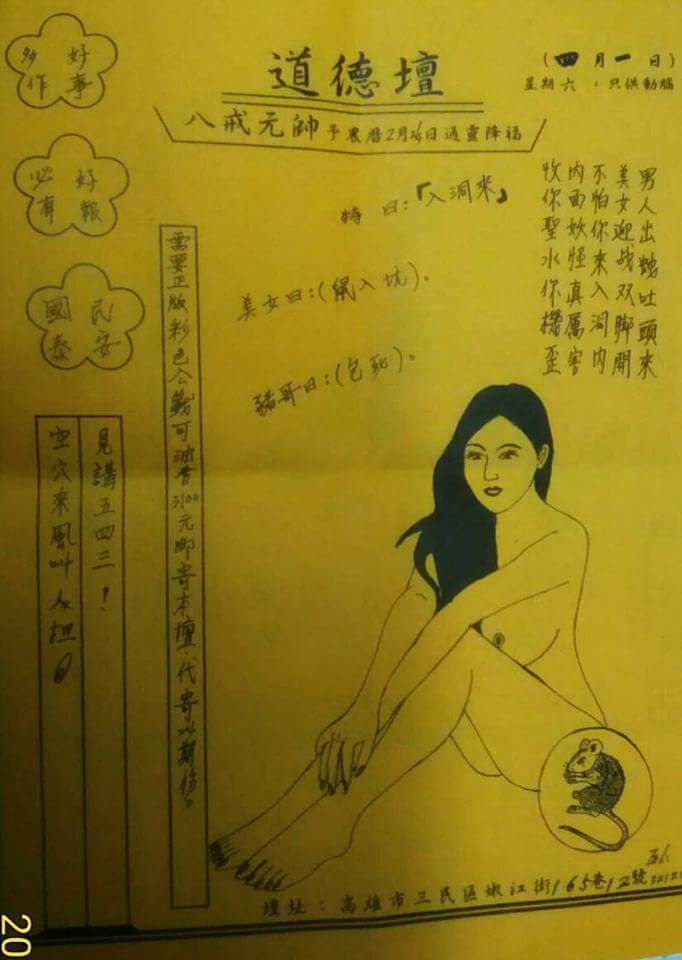 道德壇
(四月一日)
星期六，只供動腦
八戒元帥予農曆2月24日過靈降福
男人出龍吐頭來
美女迎战双脚開
不怕你來入洞內
內面妖怪真厲害
牧你聖水你機歪
特曰：「入洞來」
美女曰：(鼠入坑)。
豬哥曰：(包死)。
好事
多作
好報
必有
民安
國泰
需要正版彩色公籤可油香3100元郵寄本壇．代寄24期份。
見講五四三！
空穴來風叫人担
壇址：高雄市三民區嫩江街165巷12號
20